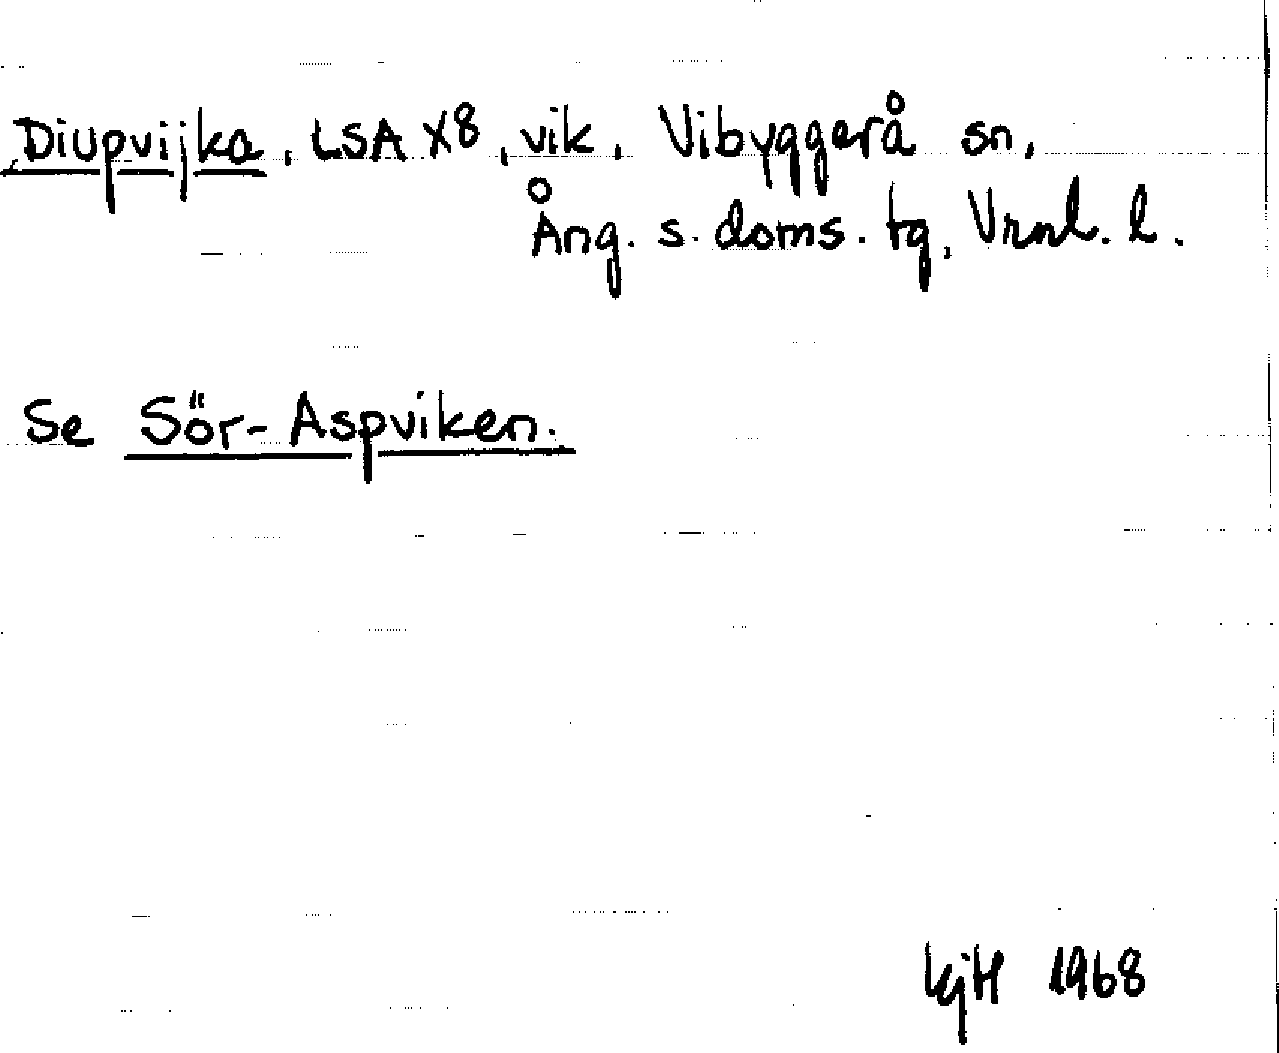 Diupvijka, LSA X8, vik, Vibyggerå sn,
Ång. s. doms. tg, Vrnl. l.
Se Sör-Aspviken.
kjH 1968